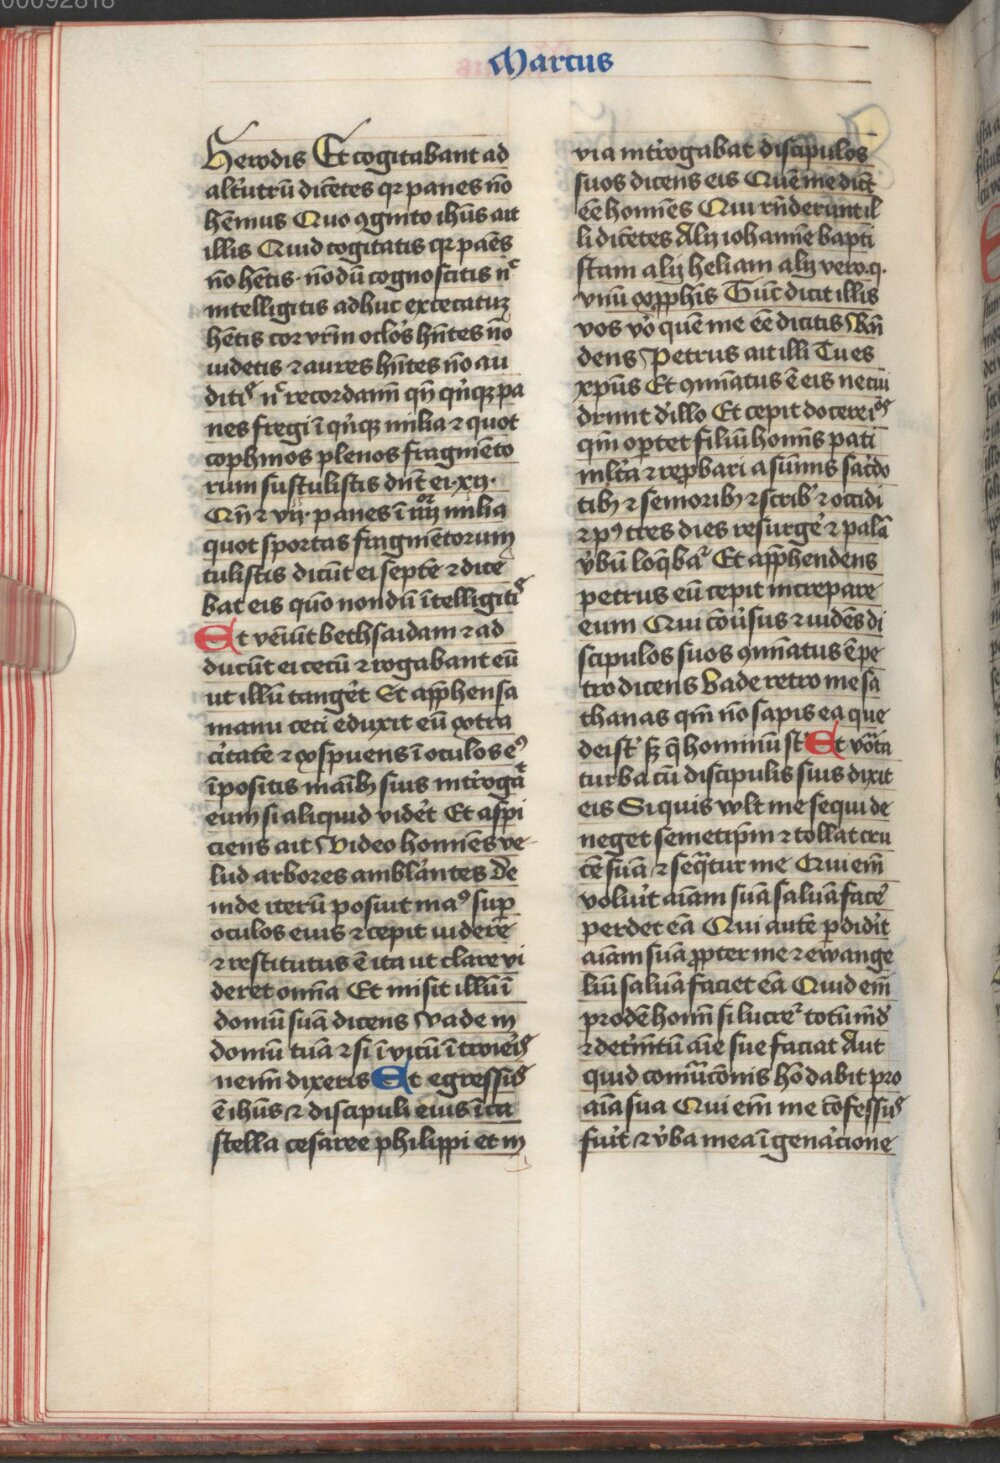 00092818
Marcus
Herodis Et cogitabant ad
alt'utrū dicētes qr panes nō
hēmus Quo ꝯgnito ihūs ait
illis Quid cogitatis qr paēs
nō hētis· nōdū cognoscitis nͨ
intelligitis adhuc excecatuꝫ
hētis cor vrm̄ oclōs hn̄tes nō
uidetis ⁊ aures hn̄tes nō au
ditis nͨ recordam̄ qn̄ qn̄qꝫ pa
nes fregi ī qn̄qꝫ milia ⁊ quot
cophinos plenos fragmēto
rum sustulistis dn̄t ei·xij·
Qn̄ ⁊ vij·panes ī iiijor milia
quot sportas fragmētorum
tulistis dicūt ei septē ⁊ dice
bat eis quō nondū ītelligitis
Et veīūt bethsaidam ⁊ ad
ducūt ei cecū ⁊ rogabant eū
ut illū tanget' Et apphensa
manu ceci eduxit eū extra
citatē ⁊ exspuens ī oculos eꝰ
īpositis maībꝫ suis introgat
eum si aliquid videt' Et aspi
ciens ait Video homīes ve
lud arbores amblāntes De
inde iterū posuit maꝰ sup
oculos eius ⁊ cepit uidere
⁊ restitutus ē ita ut clare vi
deret omīa Et misit illū ī
domū suā dicens Vade in
domū tuā ⁊ si ī vicū ītroieris
nemī dixeris Et egressus
ē ihūs ⁊ discipuli eius ī ca
stella cesaree philippi et in
via introgabat discipulos
suos dicens eis Quē me dicūt
eē homīes Qui rn̄derunt il
li dicētes Alij iohannē bapti
stam alij heliam alij vero·q·
vnū ex ꝓphīs Tūc dicit illis
vos vō quē me eē dicitis Rn̄
dens Petrus ait illi Tu es
xpūs Et ꝯmīatus ē eis ne cui
d'illo Et cepit docere eos
qm̄ optet filiū homīs pati
mlta ⁊ repbari a sūmis sacdo
tibꝫ ⁊ senioribꝫ ⁊ scrib' ⁊ occidi
⁊ pꝰ tres dies resurge' ⁊ palā
v'bū loqbat' Et apphendens
petrus eū cepit increpare
eum Qui cōu'sus ⁊ uidēs di
scipulos suos ꝯmīatus ē pe
tro dicens Vade retro me sa
thanas qm̄ nō sapis ea que
dei st' sꝫ q̄ hominū st' Et vocata
turba cū discipulis suis dixit
eis Si quis wlt me sequi de
neget semetipm̄ ⁊ tollat cru
cē suā ⁊ seqatur me Qui em̄
voluit aīam suā saluā face'
perdet eā Qui autē pdidit
aīam suā ꝓpter me ⁊ ewange
liū saluā faciet eā Quid em̄
prodē homī si lucret' totū mūd
⁊ detimētū aīe sue faciat Aut
quid comutōnis hō dabit pro
aīa sua Qui em̄ me cōfessus
fuit ⁊ v'ba mea ī genacione